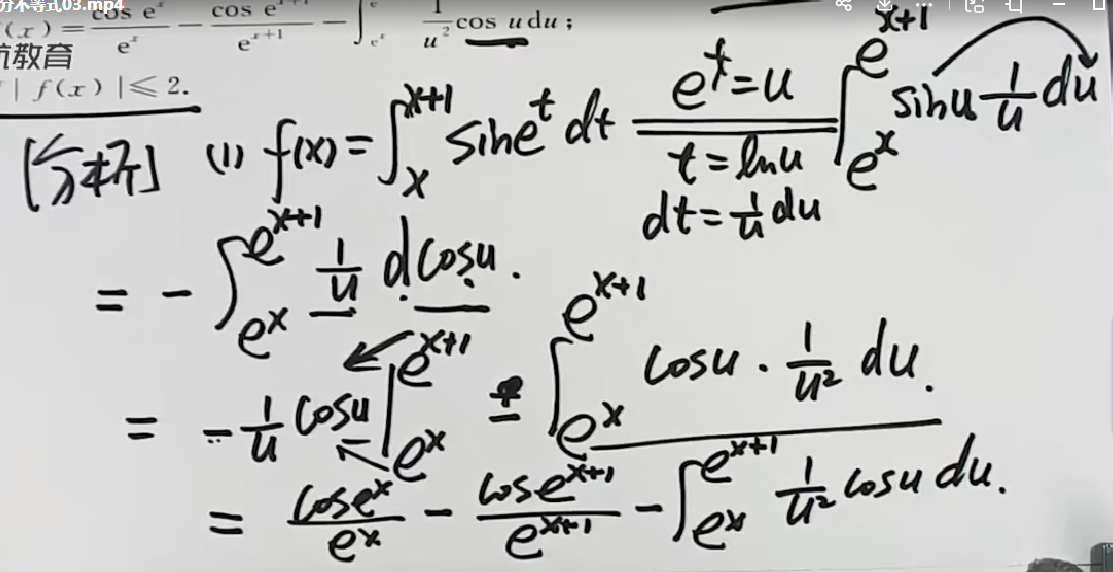 分不等式03.mp4
(x)=\frac{\cos e^x}{e^x}-\frac{\cos e^{x+1}}{e^{x+1}}-\int_{e^x} \frac{1}{u^2}\cos u du;
航教育
| f(x) |≤ 2.
[分析] (1) f(x)=\int_x^{x+1} sin e^t dt \xlongequal[t=lnu]{e^t=u} \int_{e^x}^{e^{x+1}} sinu \frac{1}{u} du
dt=\frac{1}{u}du
= -\int_{e^x}^{e^{x+1}} \frac{1}{u} dcosu.
= -\frac{1}{u} cosu |_{e^x}^{e^{x+1}} - \int_{e^x}^{e^{x+1}} cosu · \frac{1}{u^2} du.
= \frac{cose^x}{e^x} - \frac{cose^{x+1}}{e^{x+1}} - \int_{e^x}^{e^{x+1}} \frac{1}{u^2} cosu du.